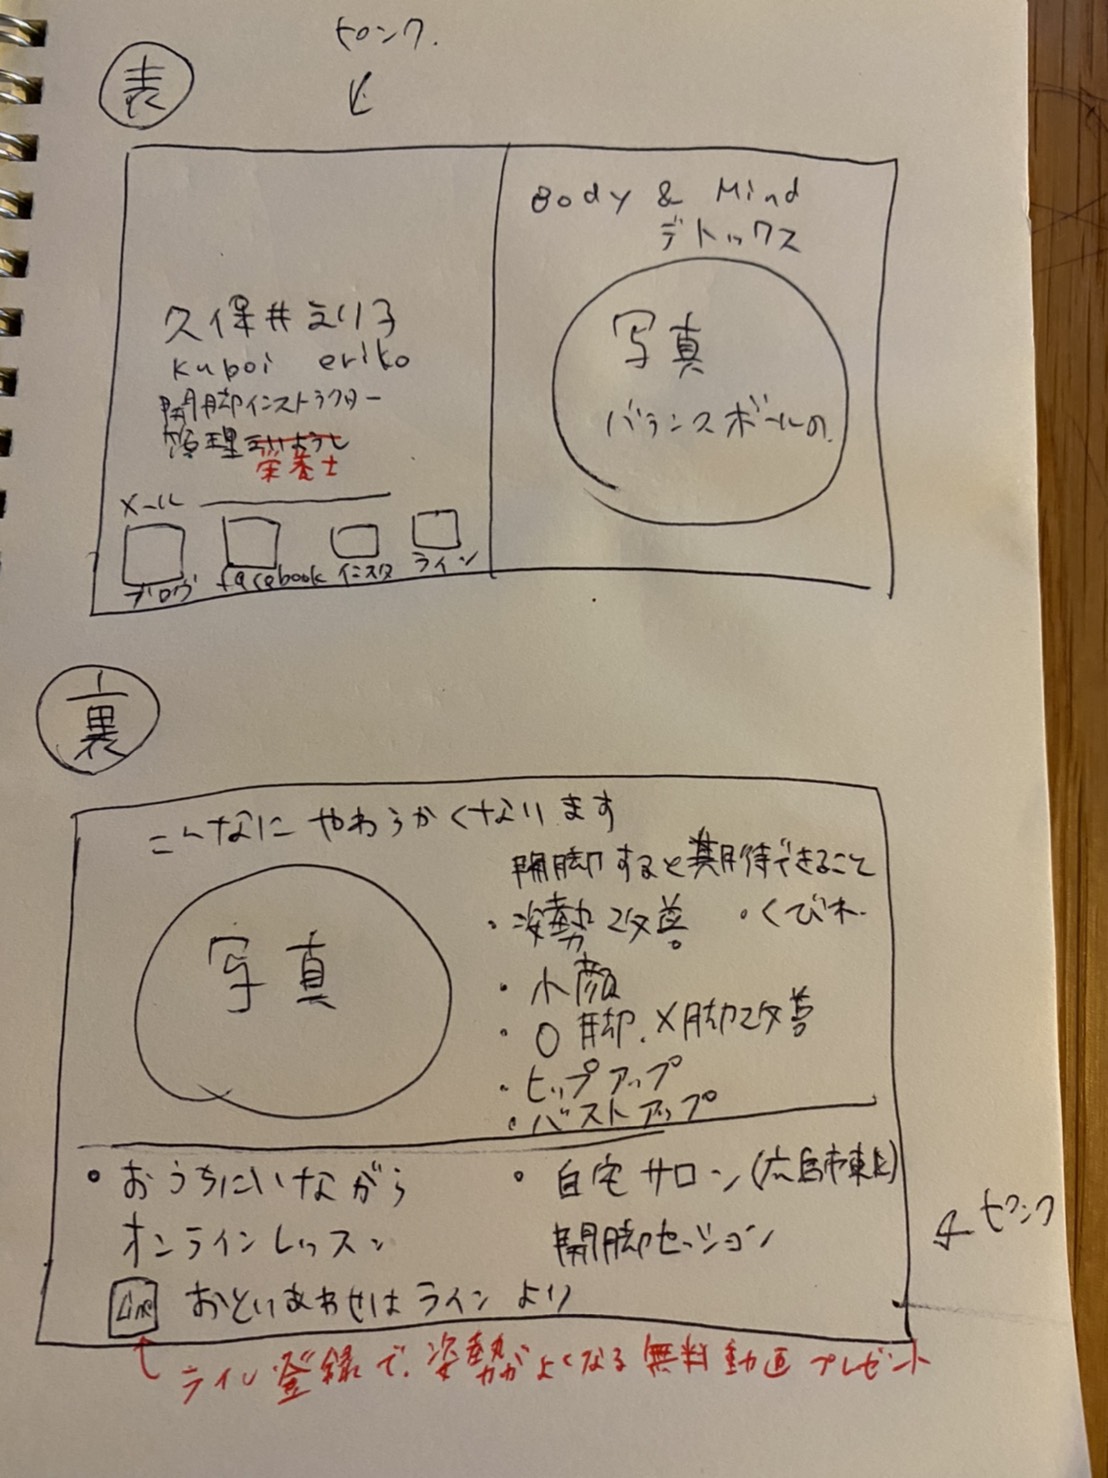 ピンク.
表
Body & Mind
デトックス
写真
バランスボールの.
久保井えり子
kuboi eriko
開脚インストラクター
管理栄養士
メール
ブログ facebook インスタ ライン
裏
こんなにやわらかくなります
写真
開脚すると期待できること
・姿勢改善。 ・くびれ.
・小顔
・O脚.X脚改善
・ヒップアップ
・バストアップ
・おうちにいながら
オンラインレッスン
・自宅サロン(広島市東区)
開脚セッション
ピンク
Line おといあわせはラインより
ライン登録で.姿勢がよくなる無料動画プレゼント